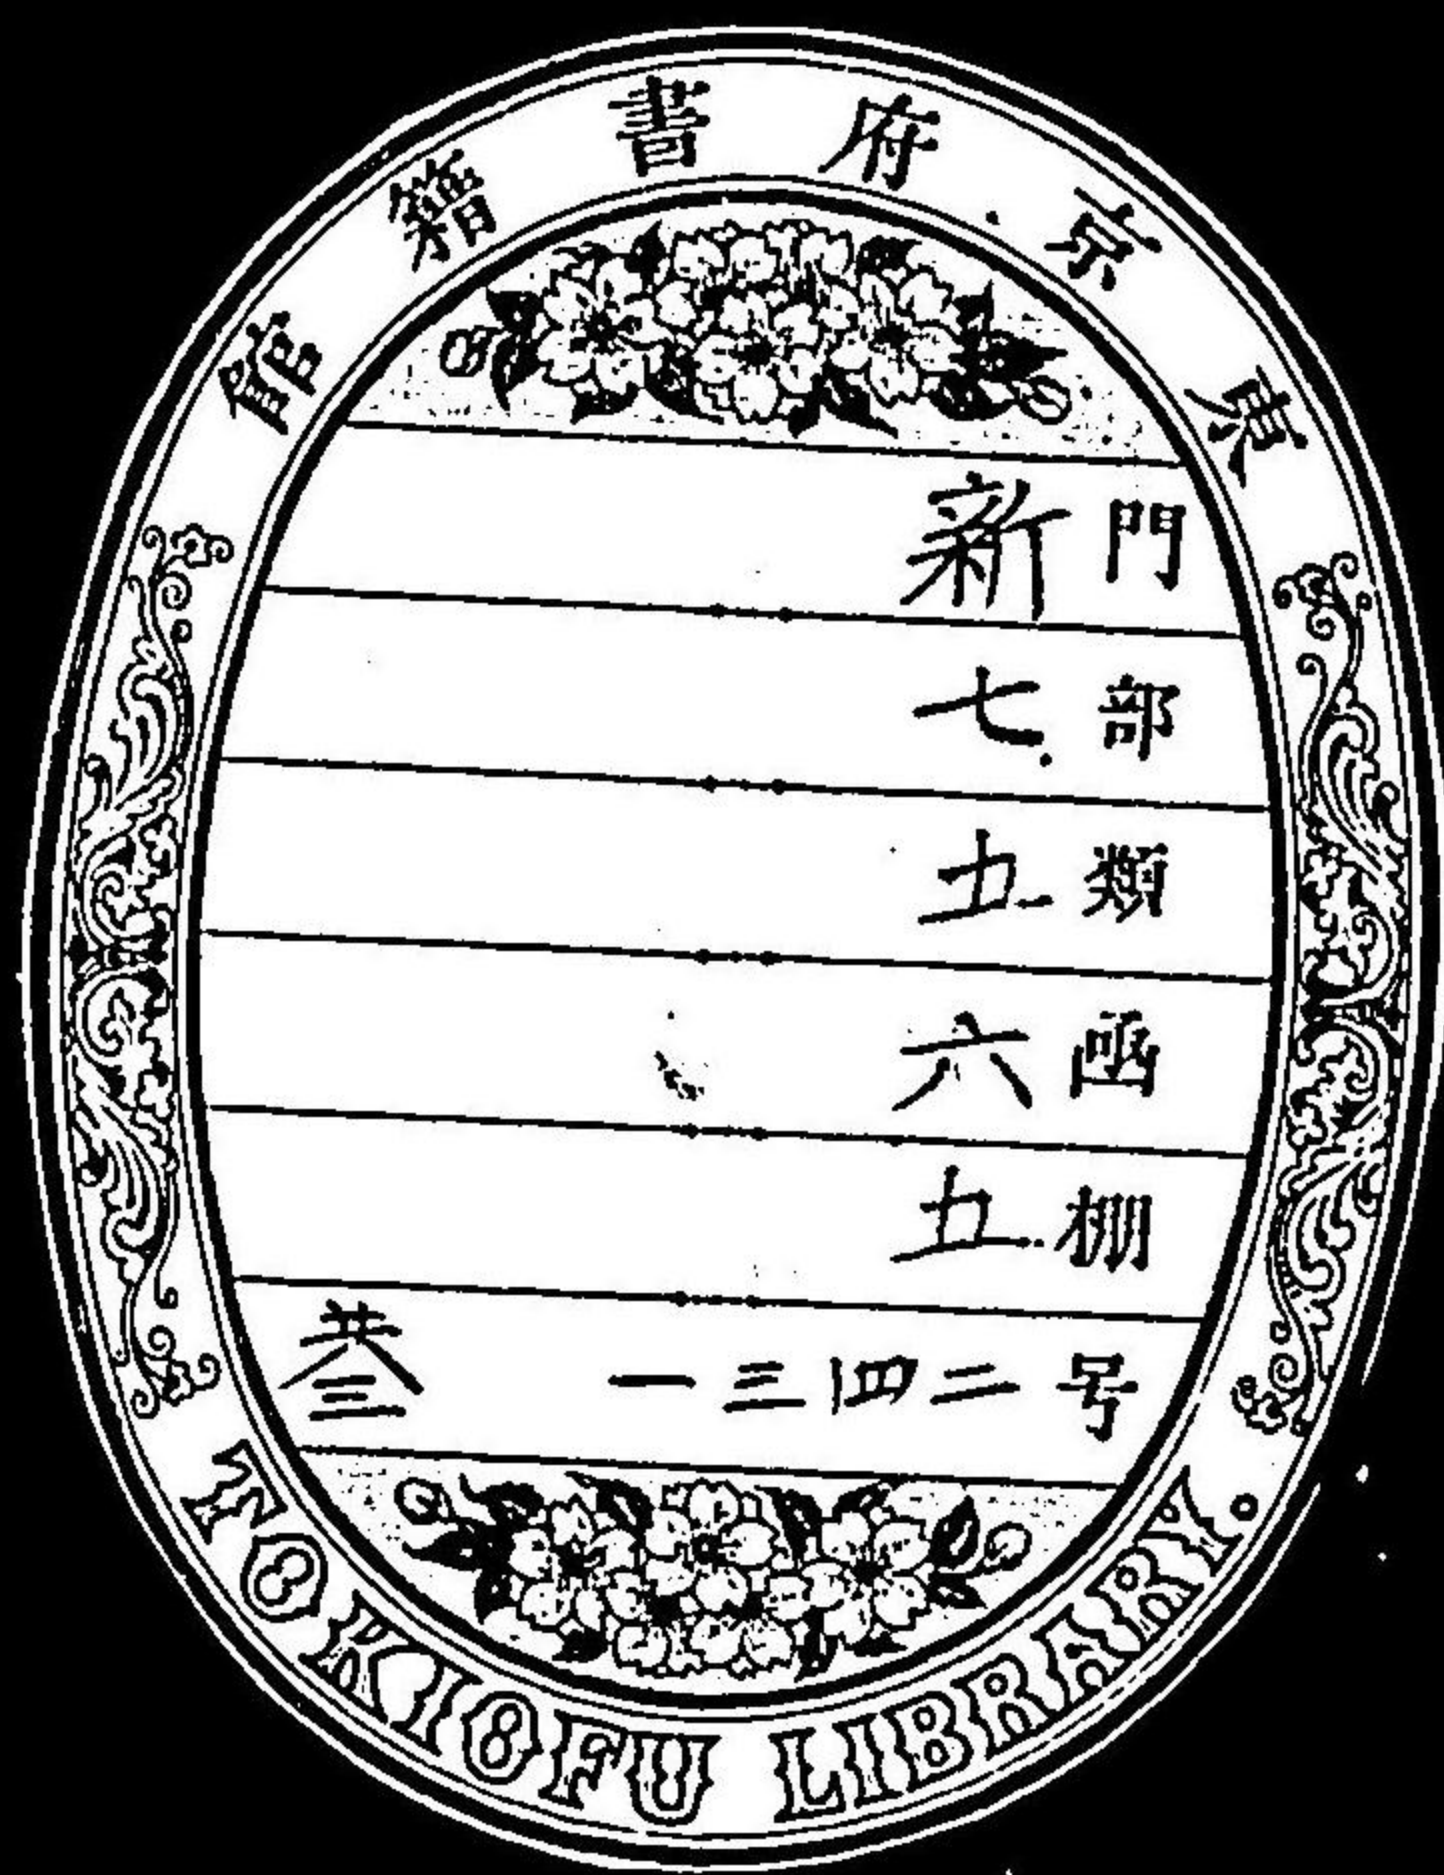 東京府書籍館
門 新
部 七
類 五
函 六
棚 五
号 二四三一 共三
TOKIOFU LIBRARY.